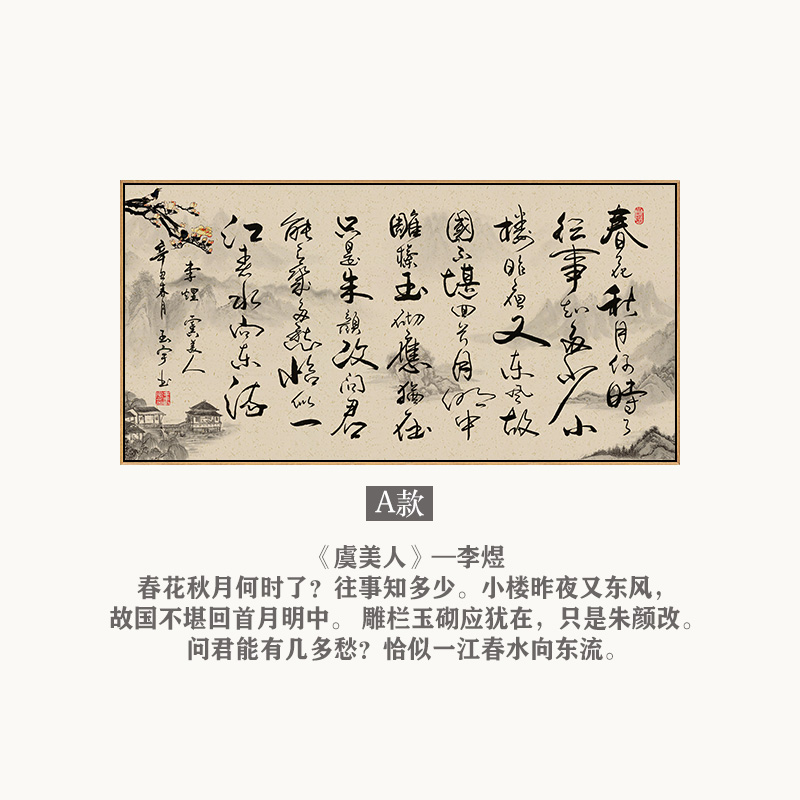 春花秋月何時了
往事知多少小
楼昨夜又东风故
國不堪回首月明中
雕欄玉砌應猶在
只是朱顏改问君
能有几多愁恰似一
江春水向东流
李煜 虞美人
辛丑春月
A款
《虞美人》—李煜
春花秋月何时了?往事知多少。小楼昨夜又东风，
故国不堪回首月明中。 雕栏玉砌应犹在，只是朱颜改。
问君能有几多愁?恰似一江春水向东流。